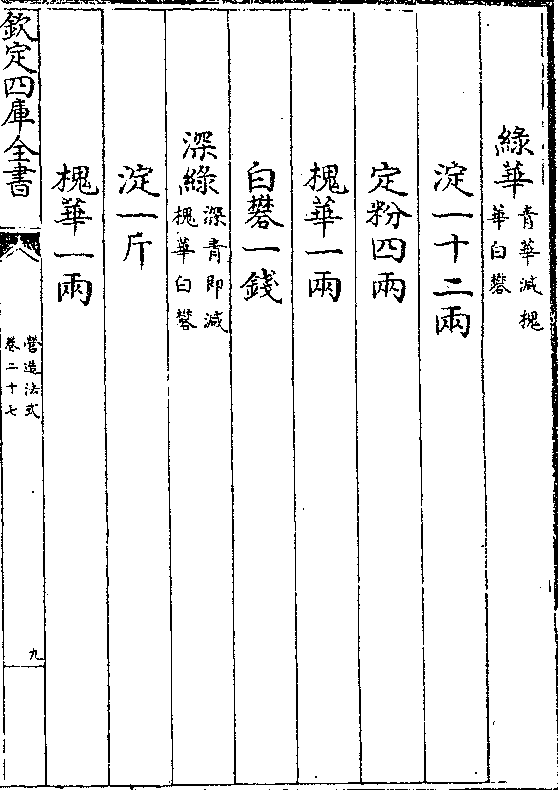 綠華青華減槐
華白礬
淀一十二兩
定粉四兩
槐華一兩
白礬一錢
深綠深青即減
槐華白礬
淀一斤
槐華一兩
欽定四庫全書
營造法式
卷二十七
九